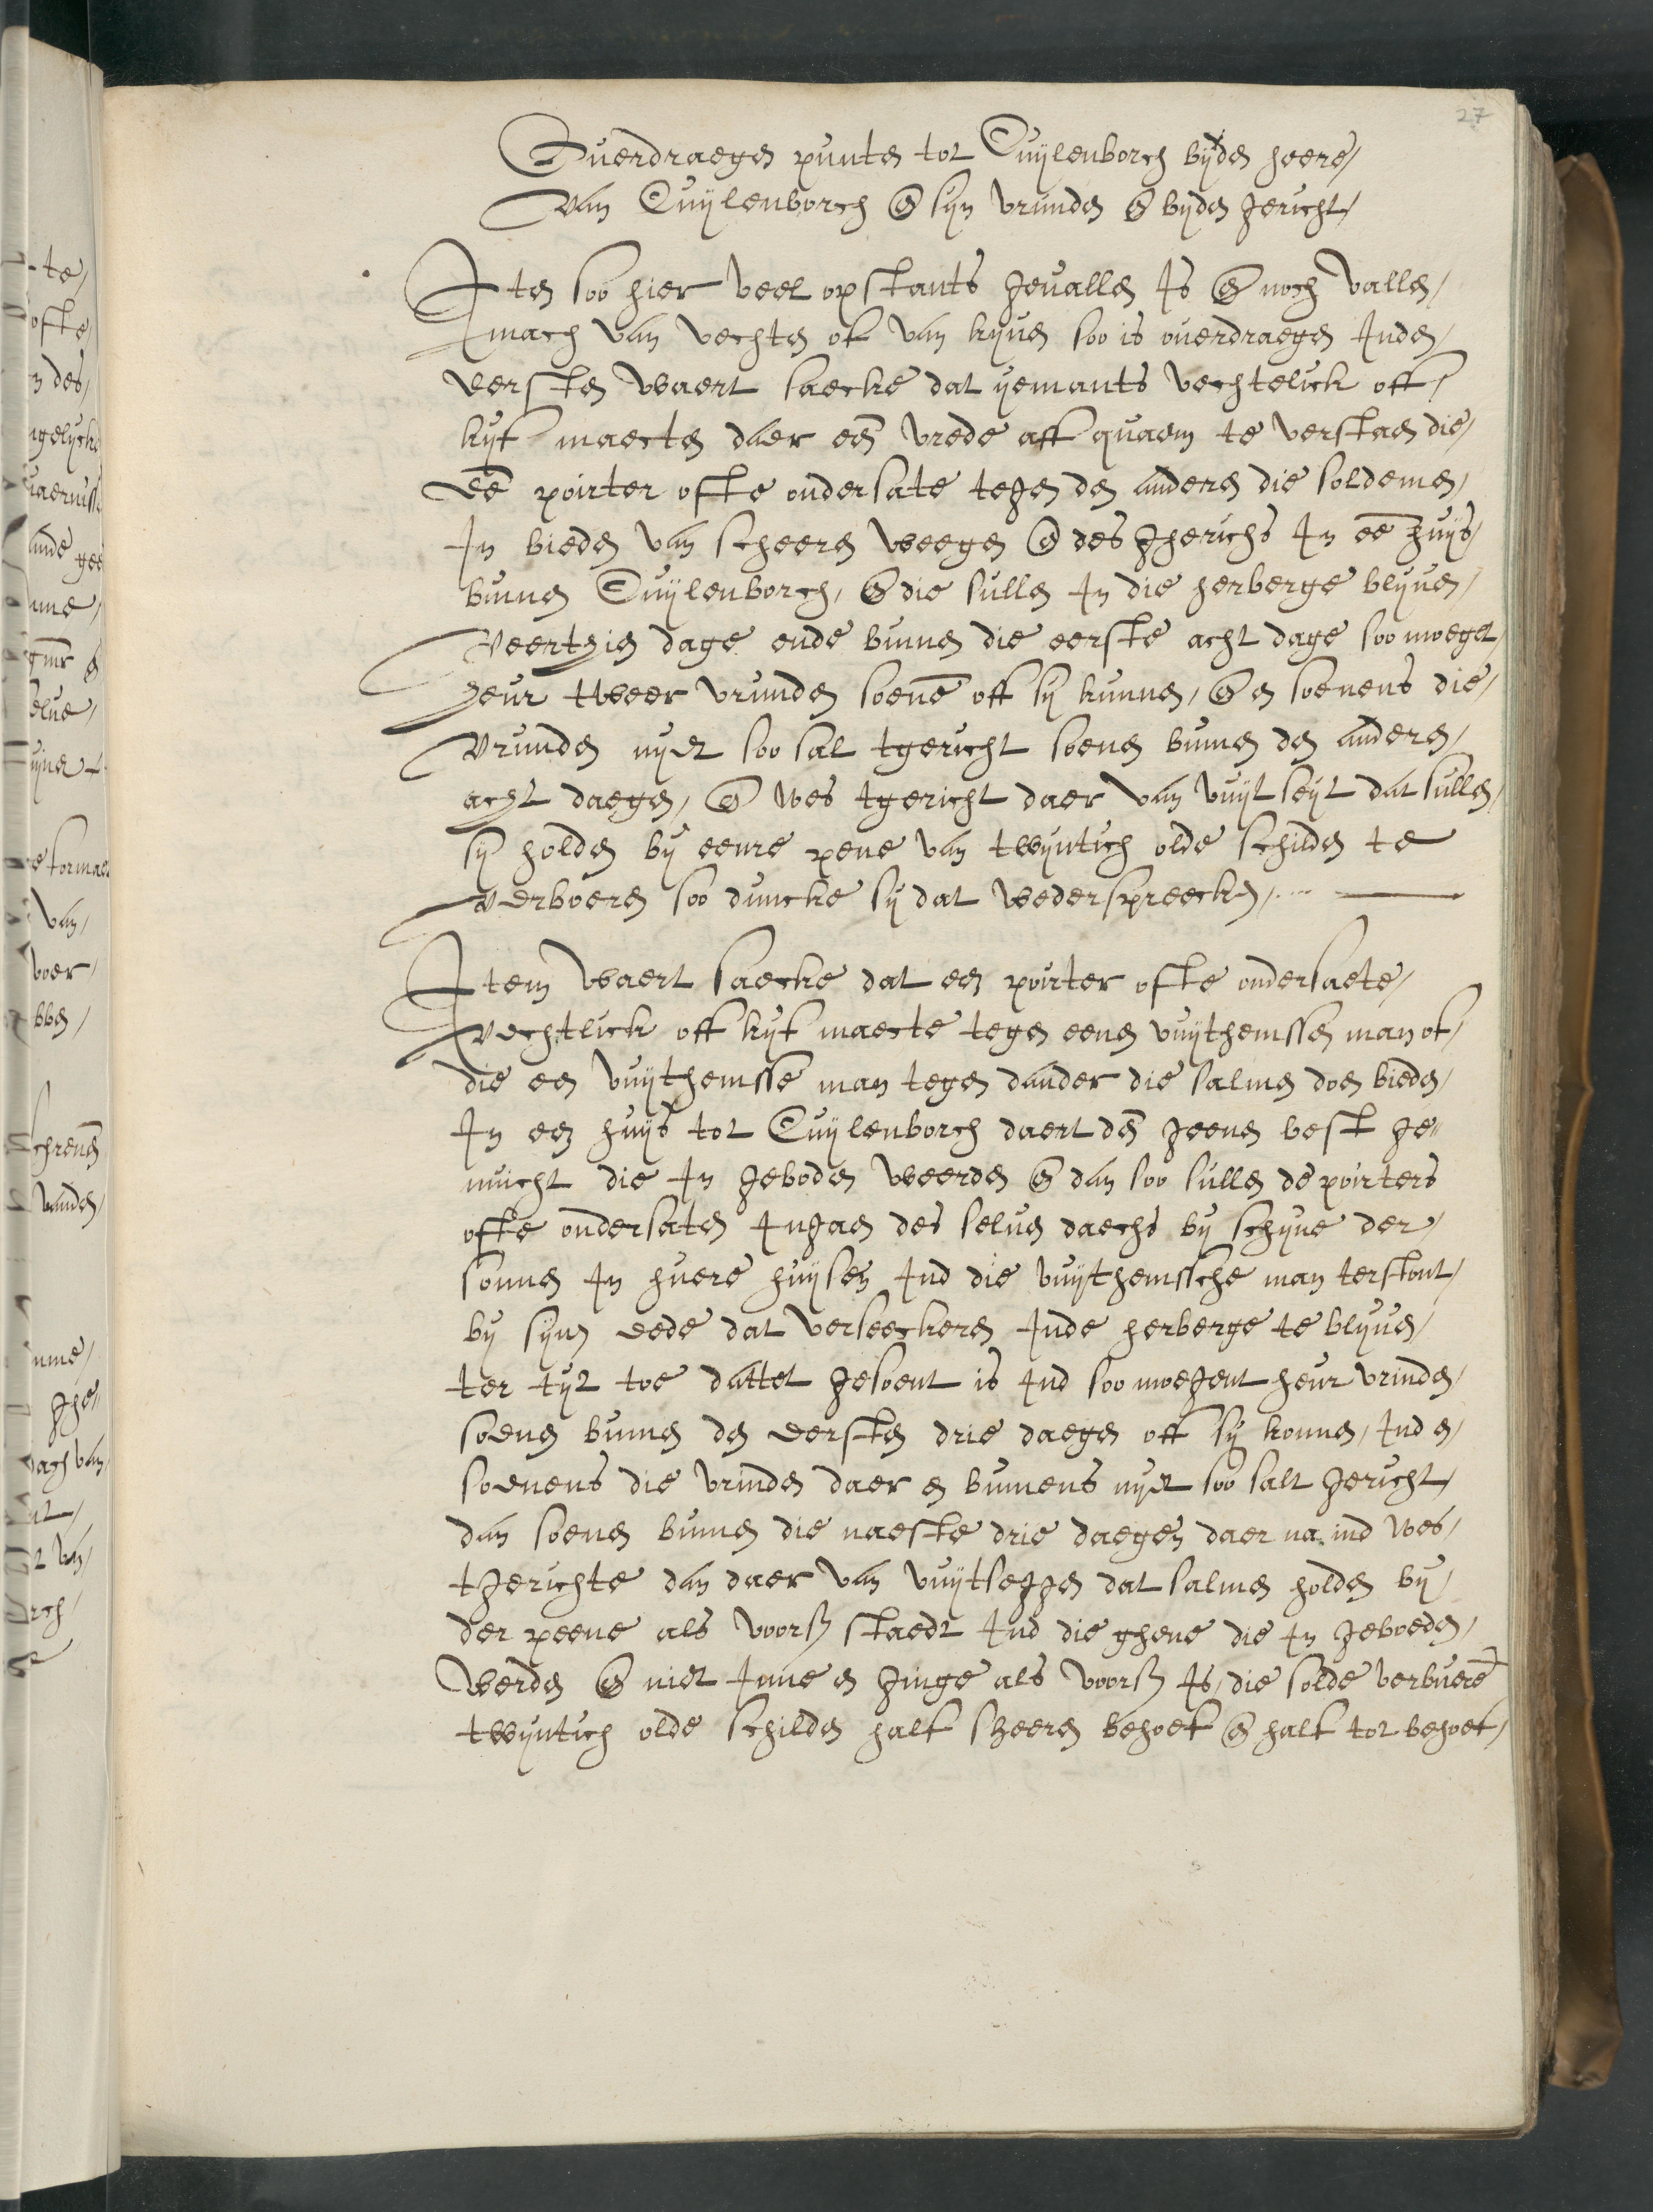 27
Ouerdraegen punten tot Cuijlenborch bijden heere
van Cuijlenborch en sijn vrunden en bijden gericht
Item soo hier veel opstants geuallen is en noch vallen
mach van vechten of van kijuen soo is ouerdraegen inden
eersten waert saecke dat yemants vechtelick off
kijf maecten daer een vrede aff quaem te verstaen die
een poirter ofte ondersate tegen den anderen die soldemen
In bieden van scheeren weegen en des gherichs In een huijs
binnen Cuijlenborch, en die sullen In die herberge blijuen
veertzien dage ende binnen die eerste acht dage soo moeget
heur tweer vrunden soenen off sij kunnen, en en soenens die
vrunden nyet soo sal tgericht soenen binnen den anderen
acht daegen, en wes tgericht daer van vuijt seijt dat sullen
sij holden bij eenre pene van twijntich olde schilden te
verboeren soo duncke sij dat wederspreecken
Item waert saecke dat een poirter ofte ondersaete
vechtlick off kijf maecte tegen eenen vuijthemssen man of
die een vuijthemsse man tegen dander die salmen doen bieden
In een huijs tot Cuijlenborch daert den geenen best ge„
nuicht die In geboden weerden en dan soo sullen de poirters
ofte ondersaten Ingaen des seluen daechs bij schijne der
sonnen In huere huijsen Ind die vuijthemssche man terstont
bij sijnen eede dat verseeckeren Inde herberge te blijuen
ter tijt toe dattet gesoent is Ind soo moegent heur vrinden
soenen binnen den eersten drie daegen off sij konnen, Ind en
soenens die vrinden daer en binnens nyet soo salt gericht
dan soenen binnen die naeste drie daegen daer na ind wes
tgerichte dan daer van vuijtseggen dat salmen holden bij
der peene als voors staedt Ind die ghene die In geboeden
werden en niet Inne en ginge als voors is, die solde verbuere
twijntich olde schilden half sheeren behoef en half tot behoef